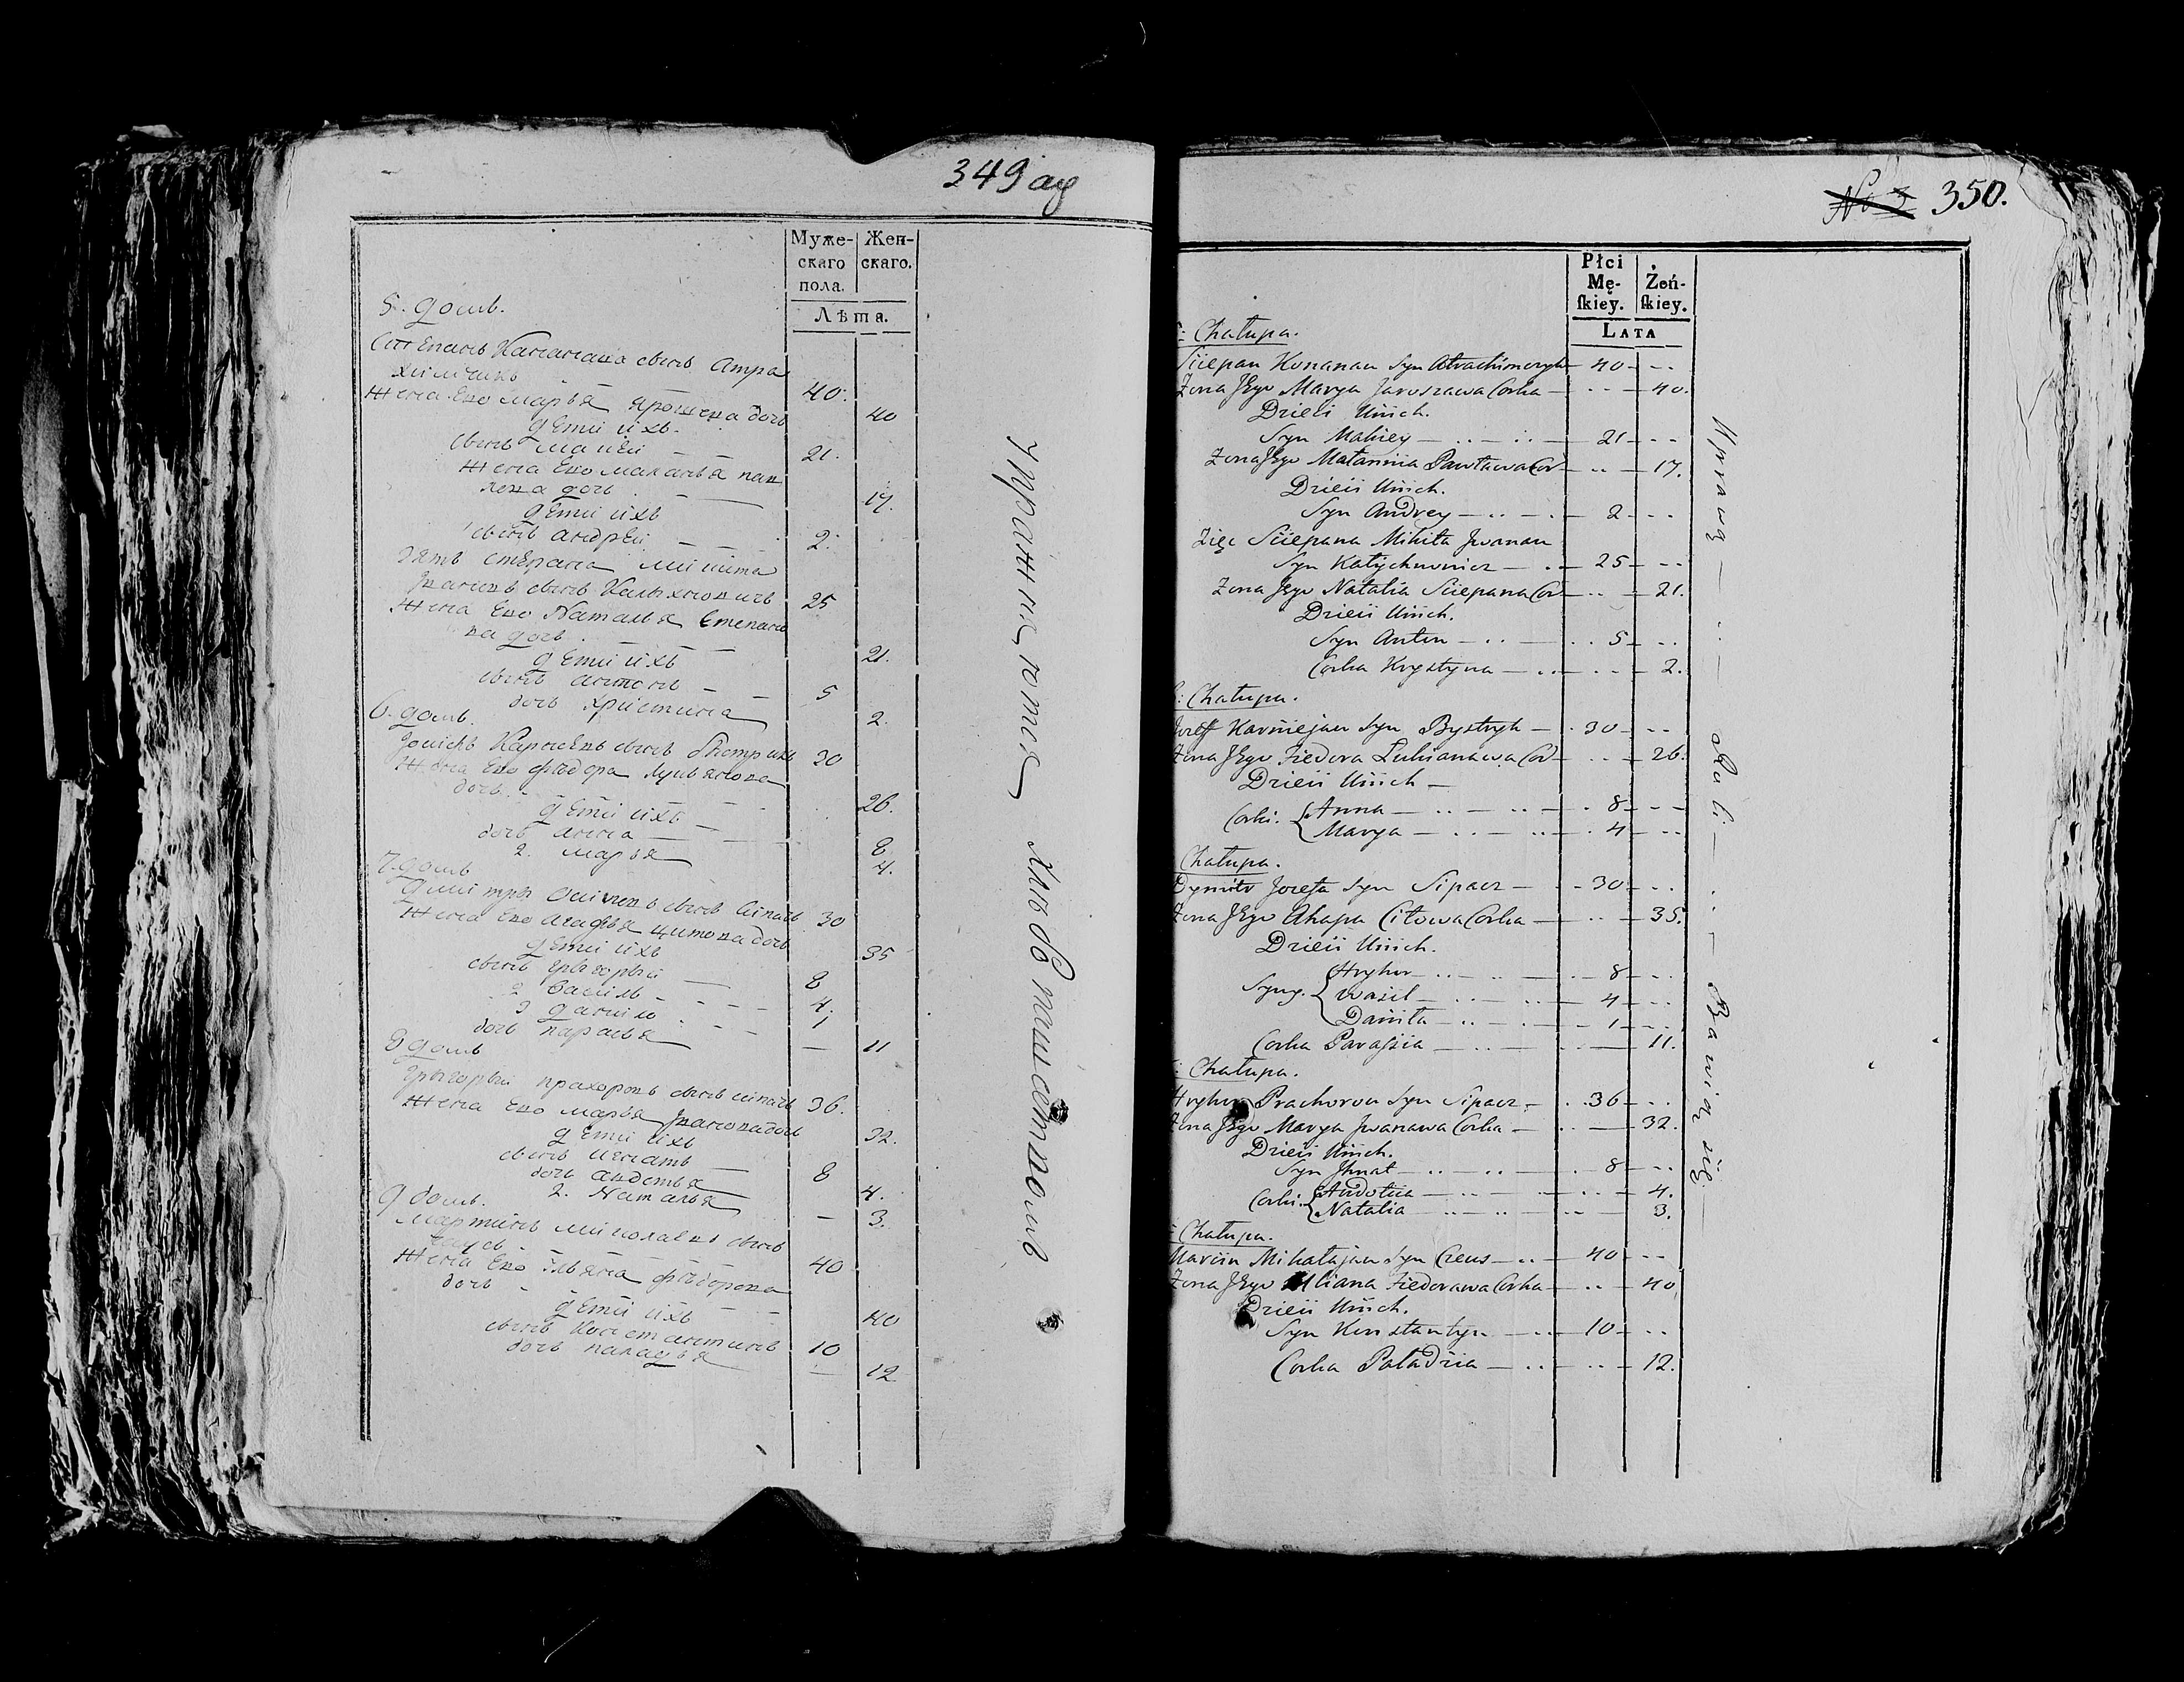 349 ая
Муже-
скаго
пола.
Жен-
скаго.
Лѣта.
5. домъ.
Степанъ Кананава сынъ Атра
химчикъ 40.
жена Его Марья Ярошева дочь 40
дети ихъ.
сынъ Маций 21.
жена Его Маланья пав
лова дочь 17.
дети ихъ
сынъ андрей 2.
зять степана Микита
Ивановъ сынъ Калыхновичъ 25
жена Его Наталья Степано
ва дочь 21.
дети ихъ
сынъ антонъ 5
дочь христина 2.
6. домъ.
30
жена Его Фёдора Лукьянова
дочь 26.
дети ихъ
дочь анна 8
2. марья 4.
7. домъ
Дмитръ Осиповъ сынъ Сипачъ 30
жена Его Агафья цитова дочь 35
дети ихъ
сынъ григорый 8
2 Василь 4.
3 данило 1
дочь парасья 11
8 домъ
григорый прахоровъ сынъ сипачъ 36.
жена Его марья Иванова дочь 32.
дети ихъ
сынъ игнатъ 8
дочь авдотья 4.
2. Наталья 3.
9 домъ.
Мартинъ миколаевъ сынъ
40
жена Его Ульяна фёдорова
дочь 40
дети ихъ
сынъ Константинъ 10
дочь палащья 12
упражняются хлебопашествомъ
No 3 350.
Płci
Mę-
ſkiey.
Żeń-
ſkiey.
LATA
Chałupa.
Sciepan Kananau Syn Atrachimczyk 40
Zona Jego Marya Jaroszawa Corka 40.
Dzieci Unich.
Syn Maciey 21
Zona Jego Małannia Pawława Cor 17.
Dzieci Unich.
Syn Andrey 2
Zięc Sciepana Mikita Jwanau
Syn Kałychnowicz 25
Zona Jego Natalia Sciepana Cor 21.
Dzieci Unich.
Syn Anton 5
Corka Krystyna 2.
Chałupa.
Jozeff Karniejau Syn Bystryk 30
Zona Jego Fiedora Łukianawa Cor 26.
Dzieci Unich
Corki. Anna 8
Marya 4
Chałupa.
Dymitr Jozefa Syn Sipacz 30
Zona Jego Ahapa Citowa Corka 35.
Dzieci Unich.
Syny. Hryhor 8
Wasil 4
Daniła 1
Corka Paraſsia 11.
Chałupa.
Hryhor Prachorou Syn Sipacz 36
Zona Jego Marya Jwanawa Corka 32.
Dzieci Unich.
Syn Jhnat 8
Corki. Audotia 4.
Natalia 3.
Chałupa.
Marcin Mikałajau Syn Czeus 40
Zona Jego Uliana Fiedorawa Corka 40
Dzieci Unich.
Syn Konstantyn 10
Corka Paładzia 12.
Uprawą Roli Bawią się